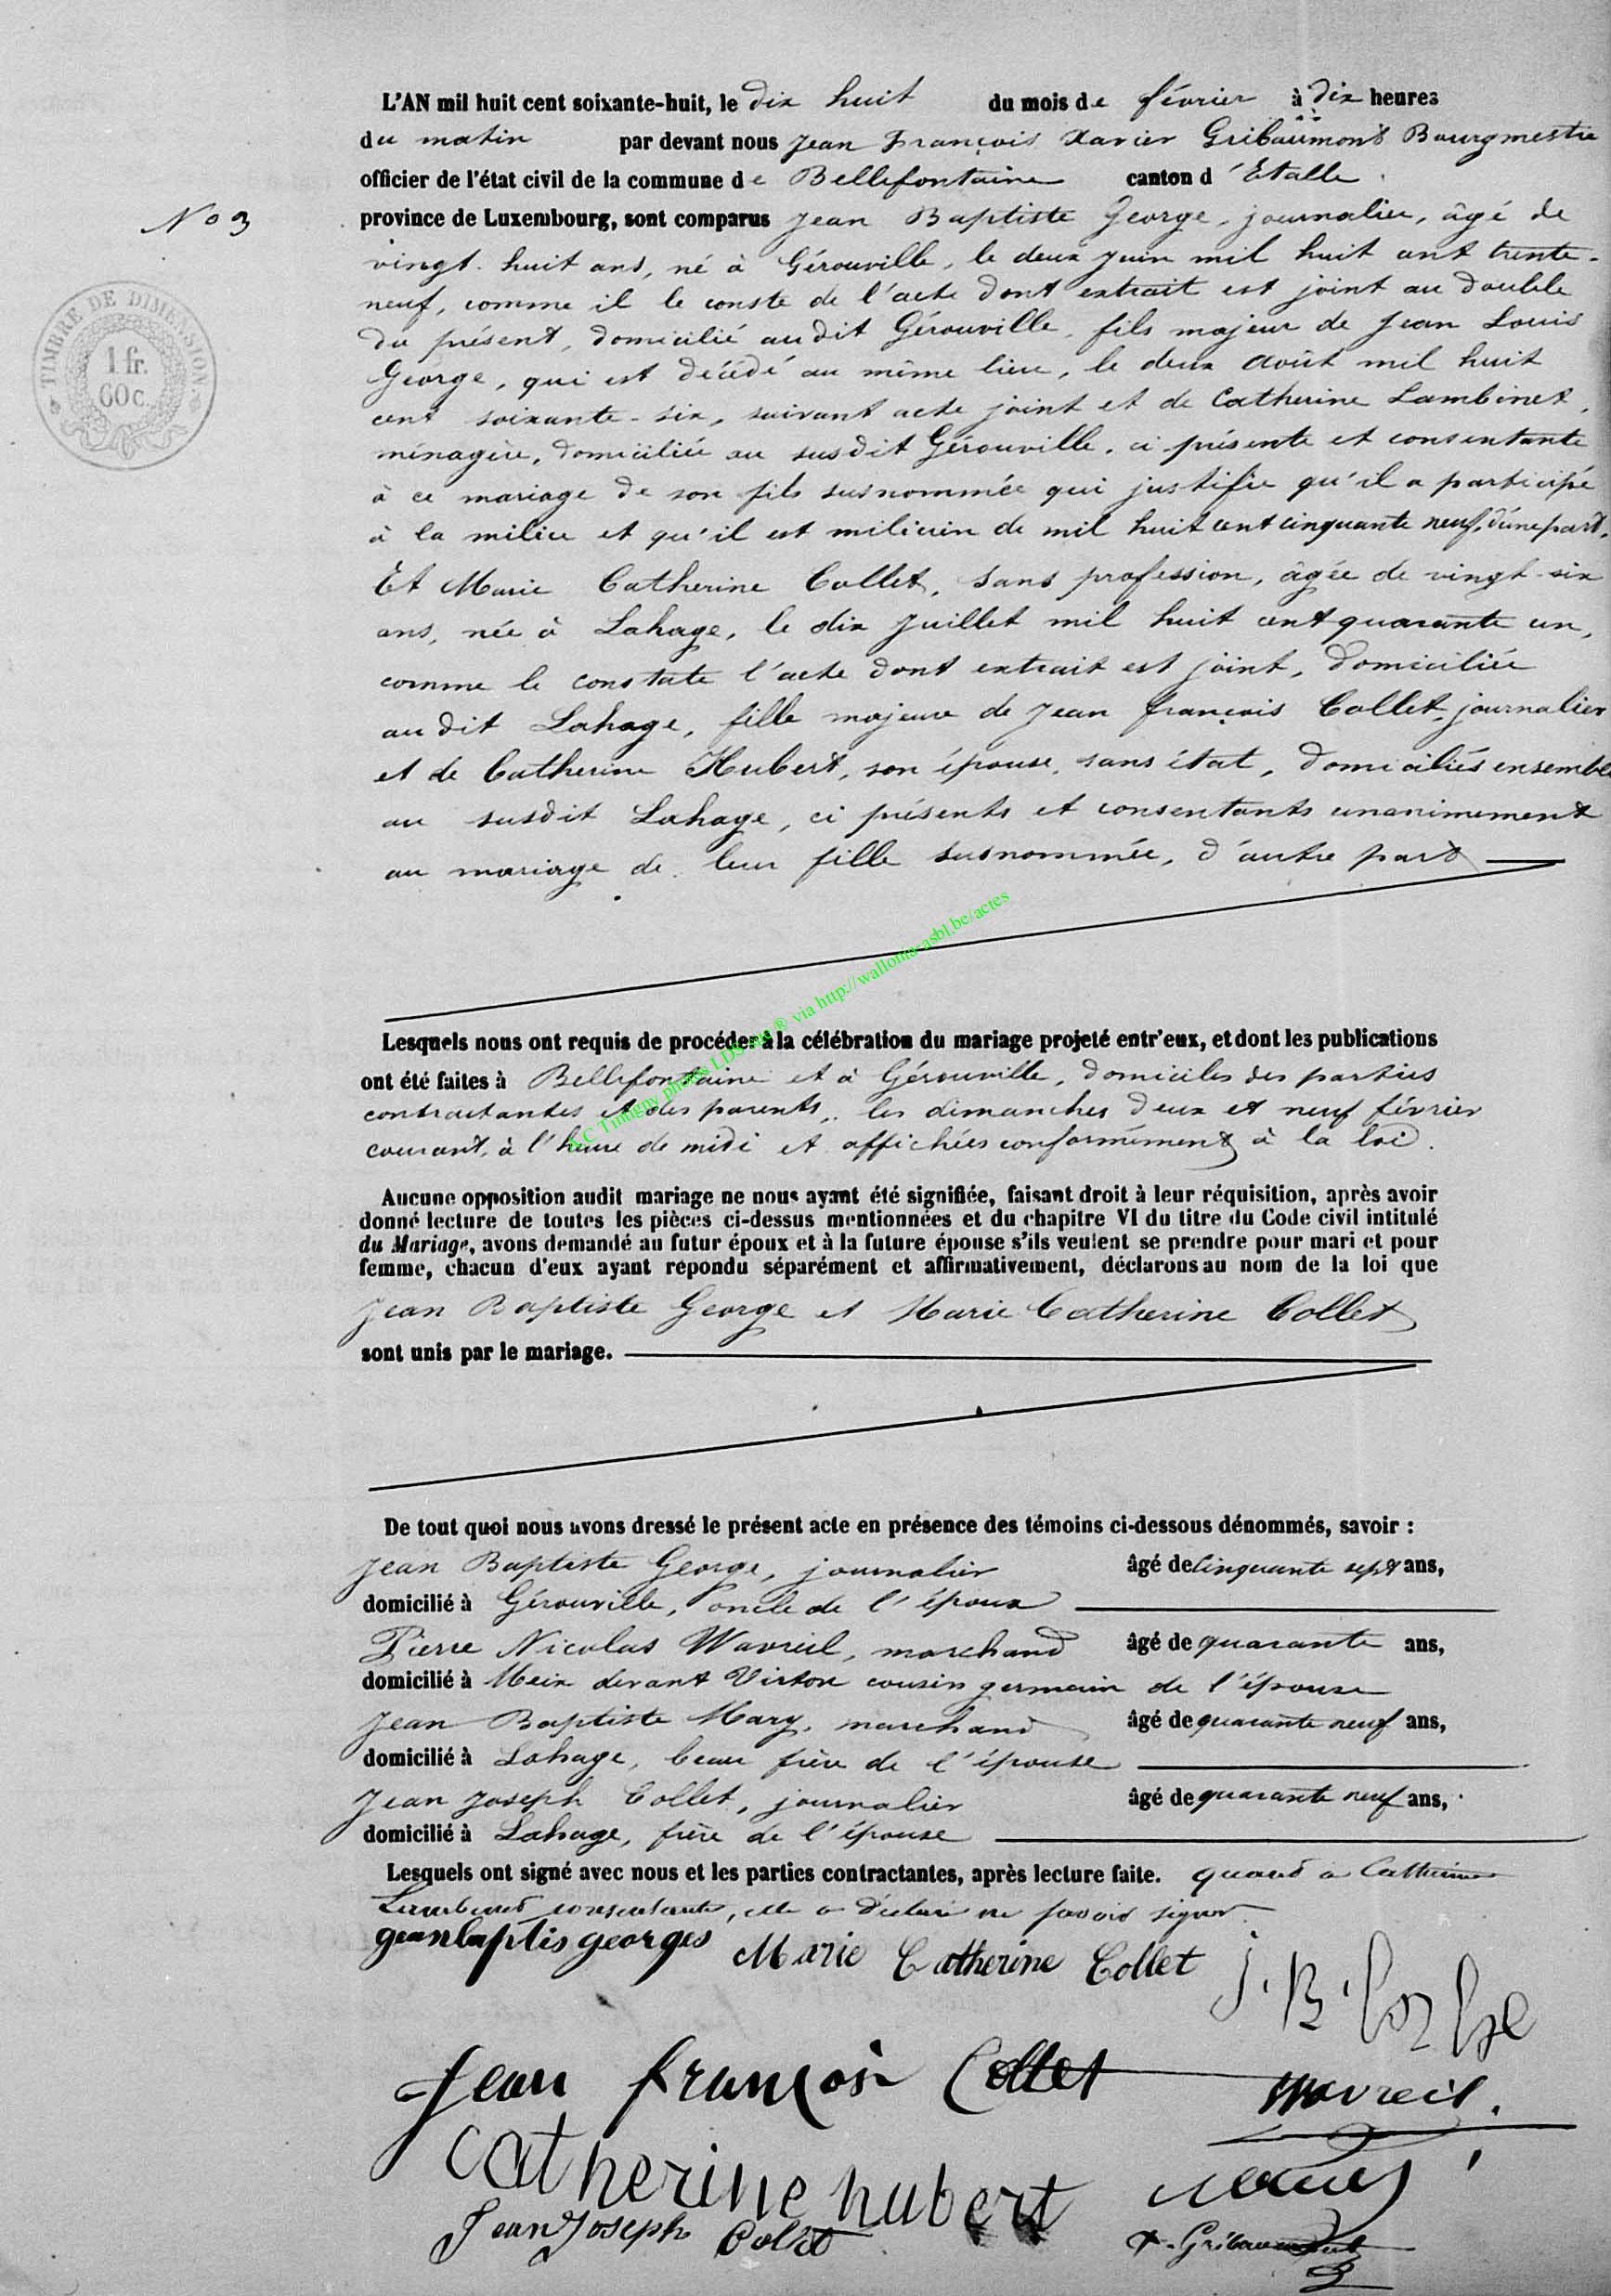 L'AN mil huit cent soixante-huit, le dix huit du mois de février à dix heures
du matin par devant nous Jean François Xavier Gribaumont Bourgmestre
officier de l'état civil de la commune de Bellefontaine canton d'Etalle
No 3
province de Luxembourg, sont comparus Jean Baptiste George, journalier, âgé de
vingt-huit ans, né à Gérouville, le deux juin mil huit cent trente-
neuf, comme il le conste de l'acte dont extrait est joint au double
du présent, domicilié au dit Gérouville, fils majeur de Jean Louis
George, qui est décédé au même lieu, le deux août mil huit
cent soixante-six, suivant acte joint et de Catherine Lambinet,
ménagère, domiciliée au susdit Gérouville, ci présente et consentante
à ce mariage de son fils susnommée qui justifie qu'il a participé
à la milice et qu'il est milicien de mil huit cent cinquante neuf, d'une part.
Et Marie Catherine Collet, sans profession, âgée de vingt-six
ans, née à Lahage, le dix juillet mil huit cent quarante un,
comme le constate l'acte dont extrait est joint, domiciliée
au dit Lahage, fille majeure de Jean françois Collet, journalier
et de Catherine Hubert, son épouse, sans état, domiciliés ensemble
au susdit Lahage, ci présents et consentants unanimement
au mariage de leur fille susnommée, d'autre part
TIMBRE DE DIMENSION
1 fr.
60 c.
A.C Tintigny photos LDS via ® via http://wallonia-asbl.be/actes
Lesquels nous ont requis de procéder à la célébration du mariage projeté entr'eux, et dont les publications
ont été faites à Bellefontaine et à Gérouville, domiciles des parties
contractantes et des parents, les dimanches deux et neuf février
courant, à l'heure de midi et affichées conformément à la loi.
Aucune opposition audit mariage ne nous ayant été signifiée, faisant droit à leur réquisition, après avoir
donné lecture de toutes les pièces ci-dessus mentionnées et du chapitre VI du titre du Code civil intitulé
du Mariage, avons demandé au futur époux et à la future épouse s'ils veulent se prendre pour mari et pour
femme, chacun d'eux ayant répondu séparément et affirmativement, déclarons au nom de la loi que
Jean Baptiste George et Marie Catherine Collet
sont unis par le mariage.
De tout quoi nous avons dressé le présent acte en présence des témoins ci-dessous dénommés, savoir :
Jean Baptiste George, journalier âgé de cinquante sept ans,
domicilié à Gérouville, oncle de l'époux
Pierre Nicolas Wavreil, marchand âgé de quarante ans,
domicilié à Meix devant Virton cousin germain de l'épouse
Jean Baptiste Mary, marchand âgé de quarante neuf ans,
domicilié à Lahage, beau frère de l'épouse
Jean Joseph Collet, journalier âgé de quarante neuf ans,
domicilié à Lahage, frère de l'épouse
Lesquels ont signé avec nous et les parties contractantes, après lecture faite. quand à Catherine
Lambinet consentante, elle a déclaré ne savoir signer.
geanbaptis georges Marie Catherine Collet J. B.
Jean françois Collet Wavreil.
catherine hubert
Jean Joseph Collet X. Gribaumont